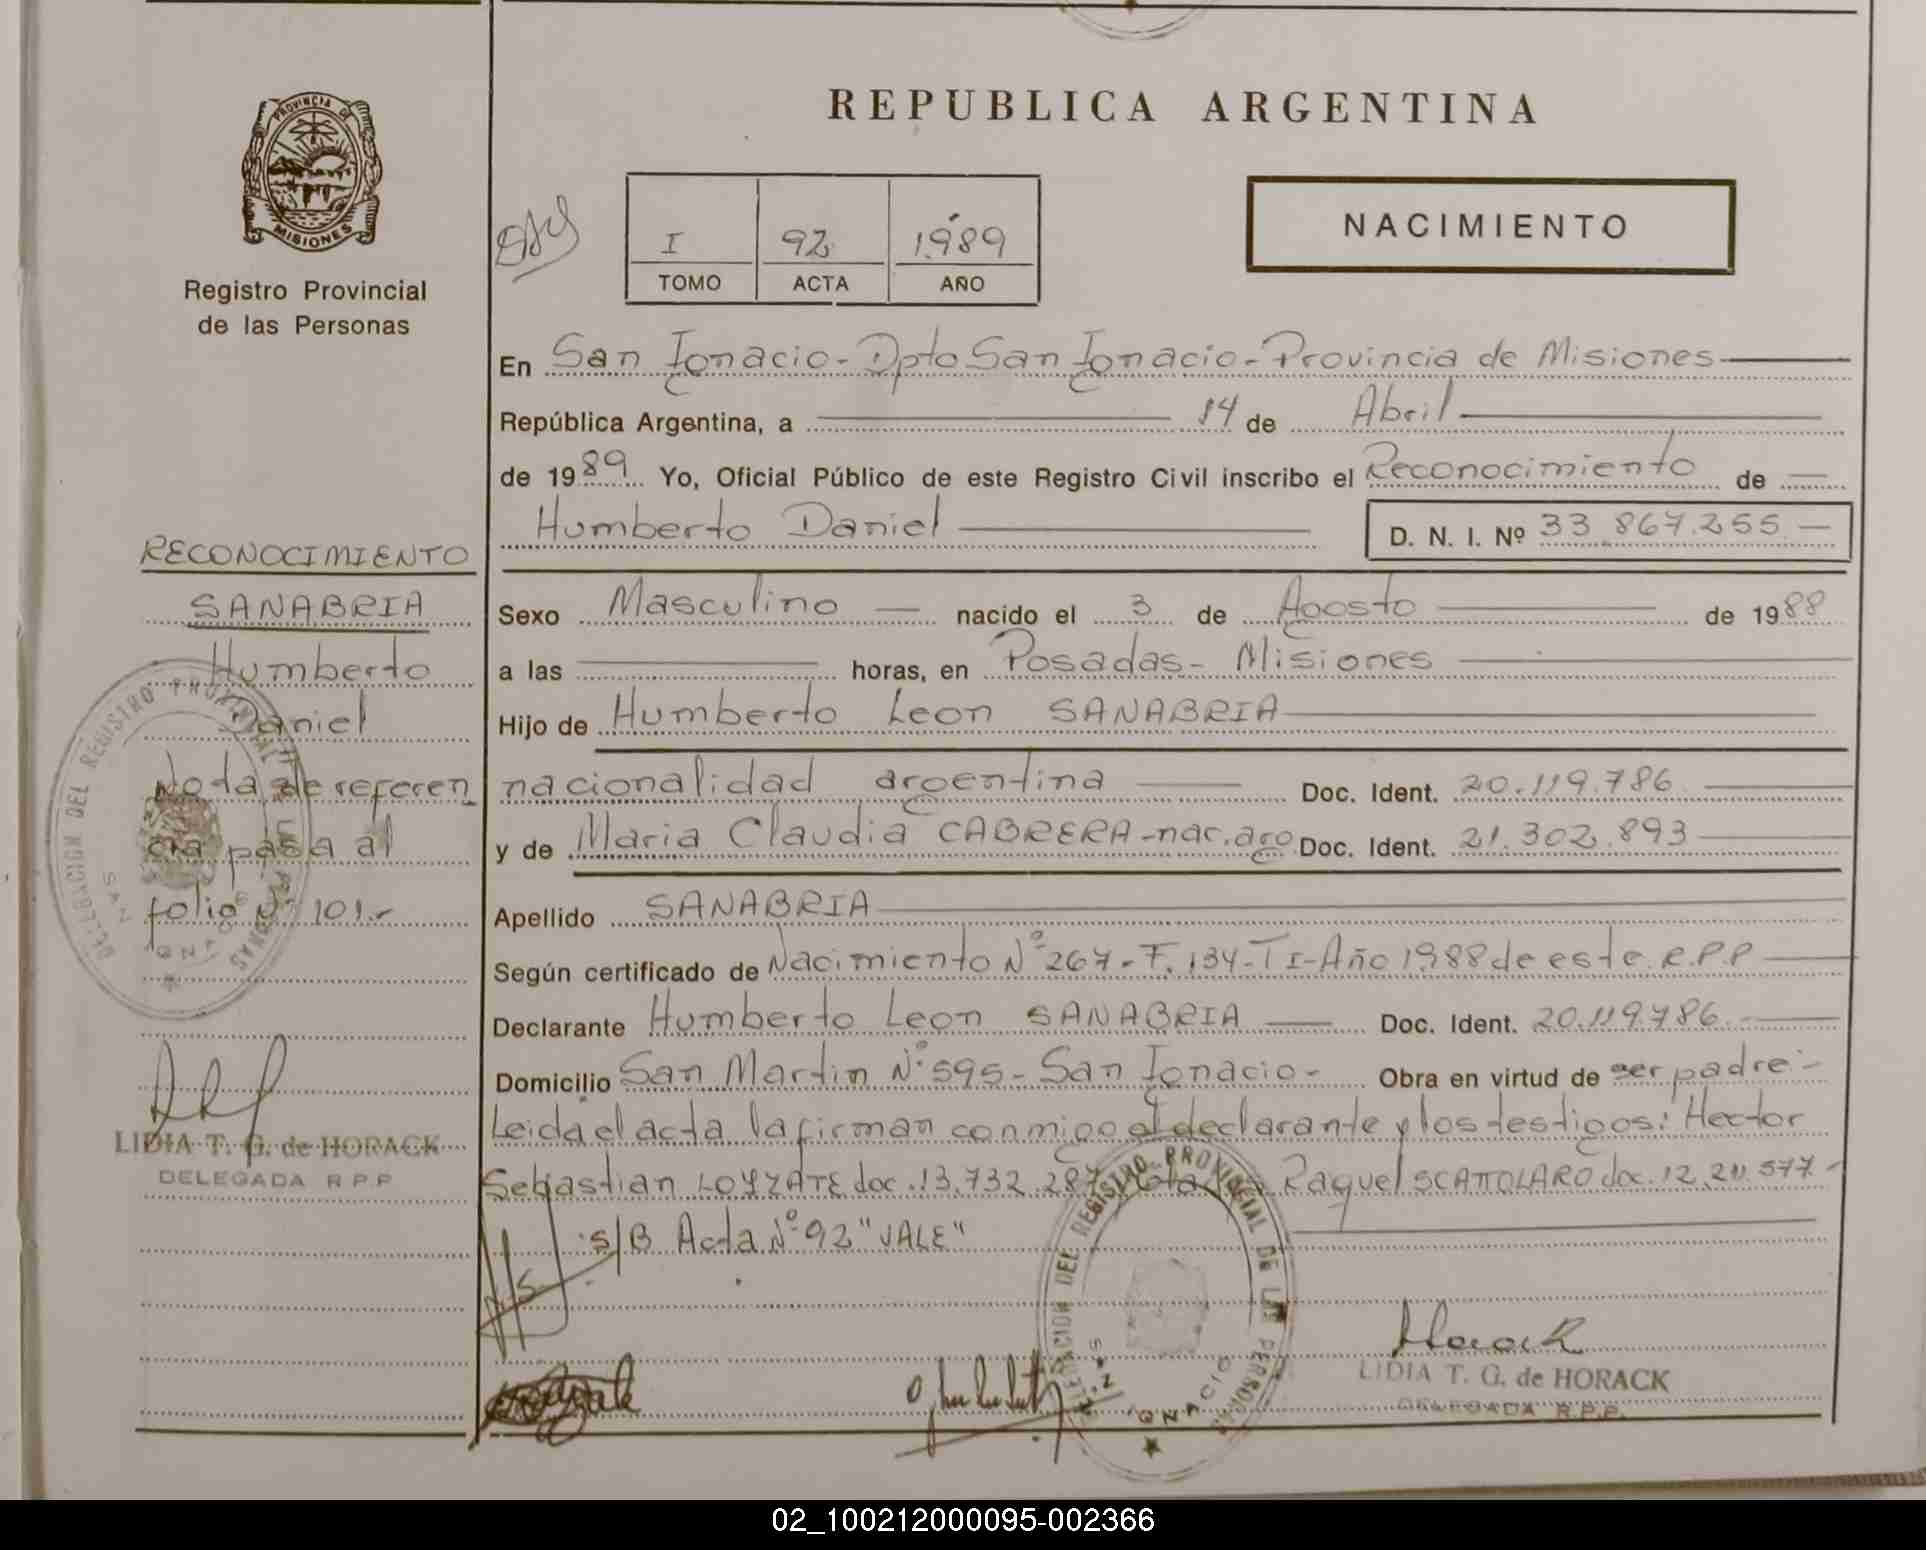 REPUBLICA ARGENTINA
PROVINCIA DE
MISIONES
Registro Provincial
de las Personas
I 92 1989
TOMO ACTA AÑO
NACIMIENTO
En San Ignacio - Dpto San Ignacio - Provincia de Misiones
República Argentina, a 14 de Abril
de 1989 Yo, Oficial Público de este Registro Civil inscribo el Reconocimiento de
Humberto Daniel D. N. I. Nº 33.867.255
Sexo Masculino nacido el 3 de Agosto de 1988
a las horas, en Posadas - Misiones
Hijo de Humberto Leon SANABRIA
nacionalidad argentina Doc. Ident. 20.119.786
y de Maria Claudia CABRERA - nac. arg. Doc. Ident. 21.302.893
Apellido SANABRIA
Según certificado de Nacimiento Nº 267 - F. 134 - T I - Año 1988 de este R.P.P
Declarante Humberto Leon SANABRIA Doc. Ident. 20.119.786
Domicilio San Martin Nº 595 - San Ignacio - Obra en virtud de ser padre -
Leida el acta la firman conmigo el declarante y los testigos: Hector
Sebastian LOYZATE doc. 13.732.287 Raquel SCATTOLARO doc. 12.211.577 -
s/B Acta Nº 92 "VALE"
RECONOCIMIENTO
SANABRIA
Humberto
Daniel
Nota de referen
cia pasa al
folio Nº 101.-
DELEGACION DEL REGISTRO PROVINCIAL DE LAS PERSONAS
SAN IGNACIO
LIDIA T. G. de HORACK
DELEGADA R P P
DELEGACION DEL REGISTRO PROVINCIAL DE LAS PERSONAS
SAN IGNACIO
Horack
LIDIA T. G. de HORACK
DELEGADA R.P.P.
02_100212000095-002366